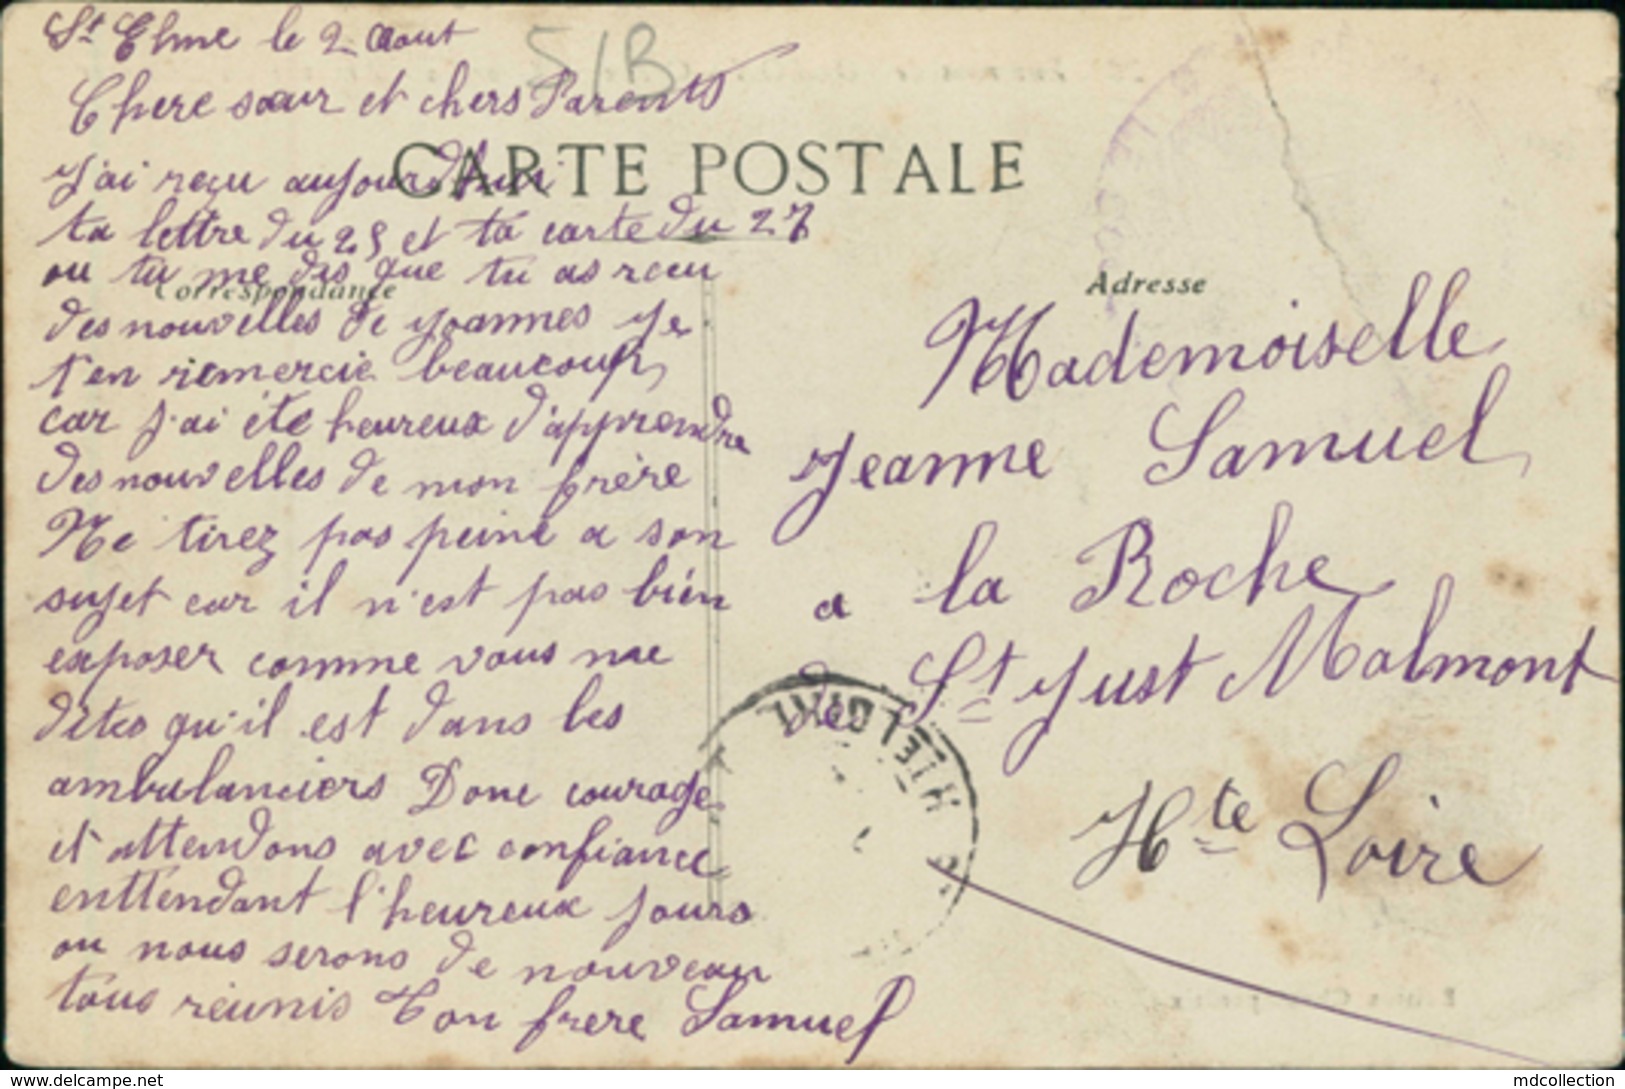 St Elme le 2 Aout
5/B
Chere sœur et chers Parents
CARTE POSTALE
J'ai reçu aujourd'hui
ta lettre du 25 et ta carte du 27
ou tu me dis que tu as reçu
Correspondance
des nouvelles de Joannes Je
t'en remercie beaucoup,
car j'ai été heureux d'apprendre
des nouvelles de mon frère
Ne tirez pas peine a son
sujet car il n'est pas bien
exposer comme vous me
dites qu'il est dans les
ambulanciers Donc courage
et attendons avec confiance
enttendant l'heureux jours
ou nous serons de nouveau
tous réunis Ton frere Samuel
Adresse
Mademoiselle
Jeanne Samuel
a la Roche
de St Just Malmont
Hte Loire
www.delcampe.net
mdcollection